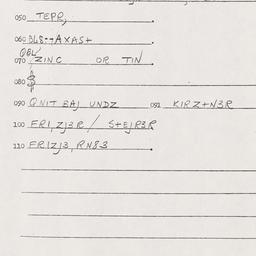 050 TEPP,
060 BLS--AXAS+
070 ZINC OR TIN
080
090 QNIT BAJ UNDZ 091 KIRZ+N3R
100 FRI,ZJ3R / S+EJR3R
110 FRIZJ3,RN83